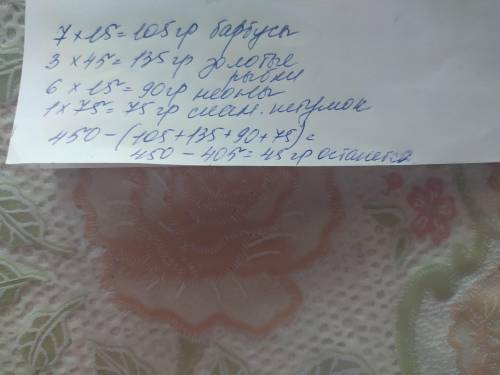 7 × 15 = 105 гр барбусы
3 × 45 = 135 гр золотые
рыбки
6 × 15 = 90 гр неоны
1 × 75 = 75 гр сиам. петушок
450 - (105 + 135 + 90 + 75) =
450 - 405 = 45 гр останется